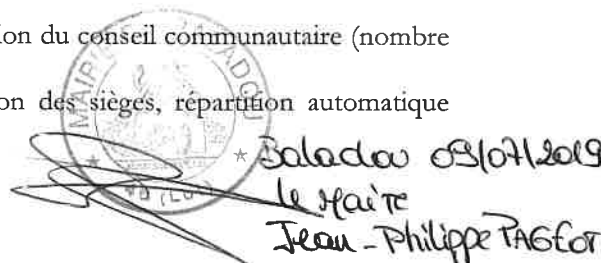 ion du conseil communautaire (nombre
on des sièges, répartition automatique
MAIRIE
(LOT)
Baladou 09/07/2019
le Maire
Jean-Philippe PAGEOT